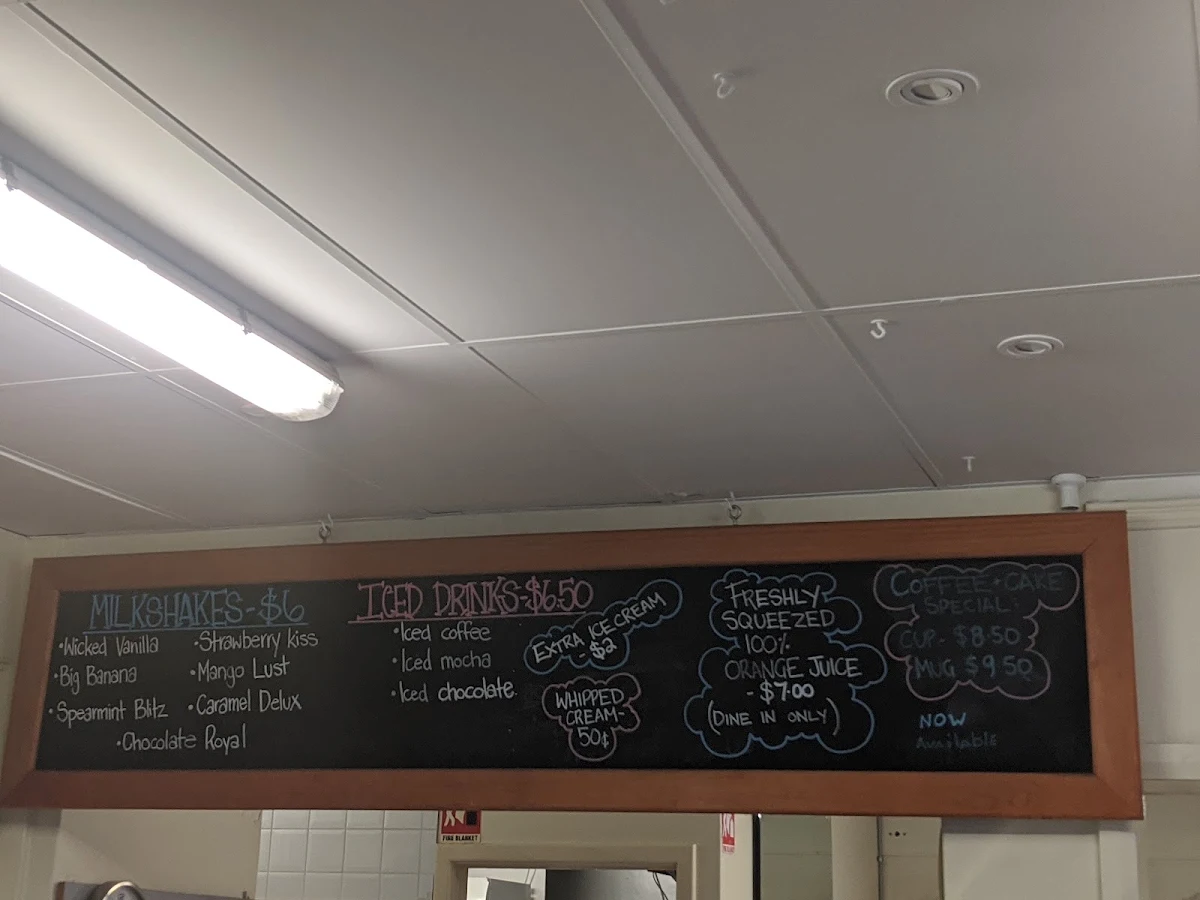 MILKSHAKES-$6
•Wicked Vanilla
•Strawberry kiss
•Big Banana
•Mango Lust
•Spearmint Blitz
•Caramel Delux
•Chocolate Royal
ICED DRINKS-$6.50
•Iced coffee
•Iced mocha
•Iced chocolate.
EXTRA ICE CREAM
- $2
WHIPPED
CREAM-
50¢
FRESHLY
SQUEEZED
100%
ORANGE JUICE
- $7.00
(DINE IN ONLY)
COFFEE + CAKE
SPECIAL:
CUP - $8.50
MUG $9.50
NOW
Available
FIRE BLANKET